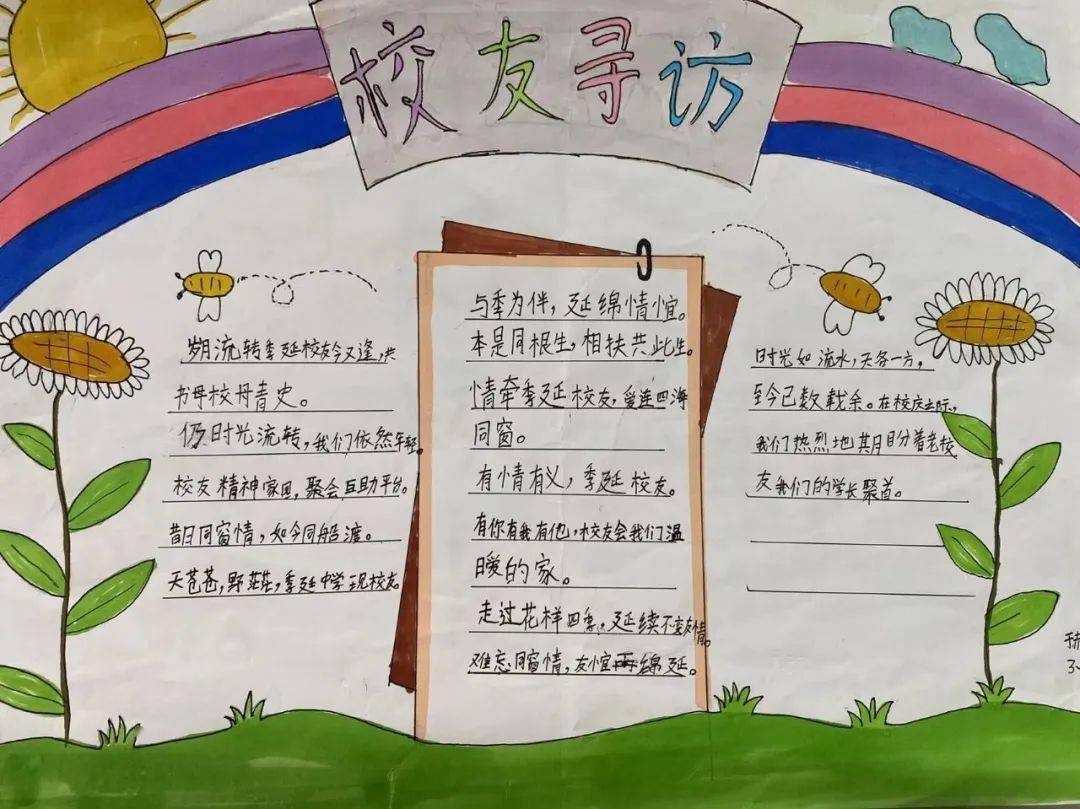 校友寻访
岁月流转季延校友今又逢,共
书母校丹青史。
仍时光流转,我们依然年轻。
校友精神家园,聚会互助平台。
昔日同窗情,如今同船渡。
天苍苍,野茫茫,季延中学现校友。
与季为伴,延绵情谊。
本是同根生,相扶共此生。
情牵季延校友,爱连四海
同窗。
有情有义,季延校友。
有你有我有他,校友会我们温
暖的家。
走过花样四季,延续不变友情。
难忘同窗情,友谊再绵延。
时光如流水,天各一方,
至今已数载余。在校庆之际,
我们热烈地期盼着老校
友我们的学长聚首。